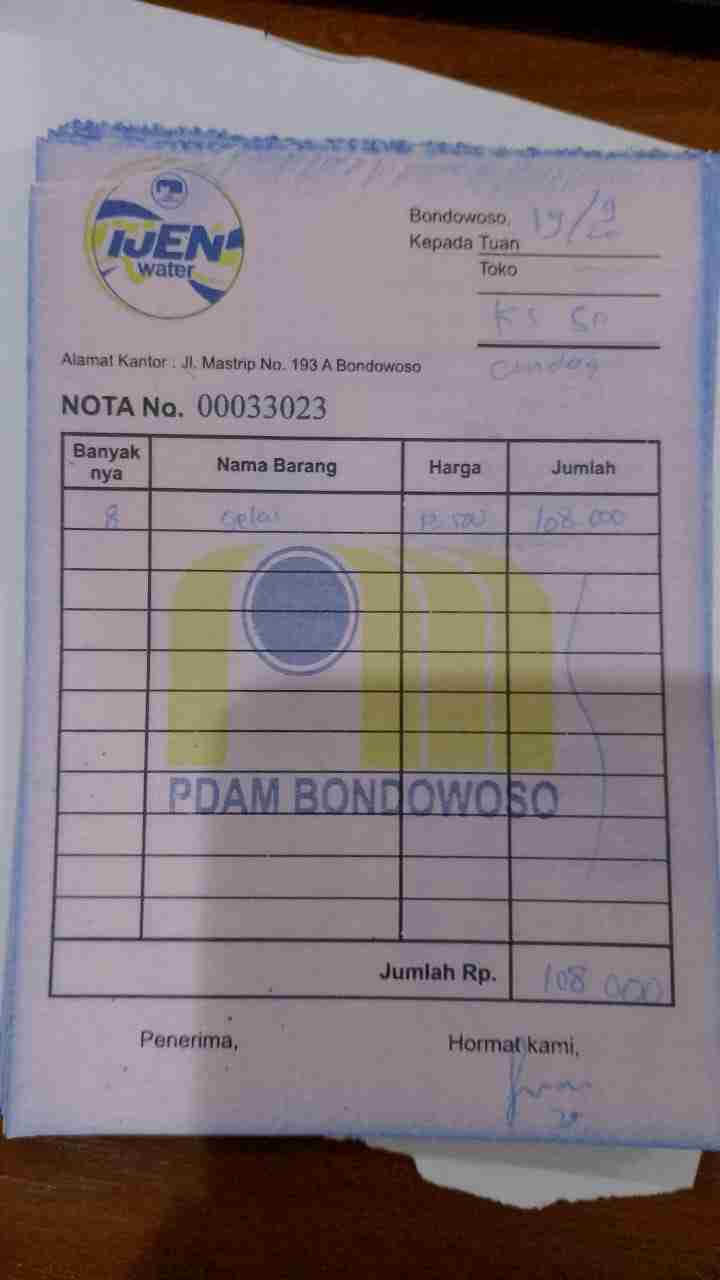 IJEN
water
Bondowoso, 19/9 20
Kepada Tuan
Toko
Alamat Kantor : Jl. Mastrip No. 193 A Bondowoso
NOTA No. 00033023
Banyak nya Nama Barang Harga Jumlah
8 Gelas 13.500 108 000
PDAM BONDOWOSO
Jumlah Rp. 108 000
Penerima, Hormat kami,